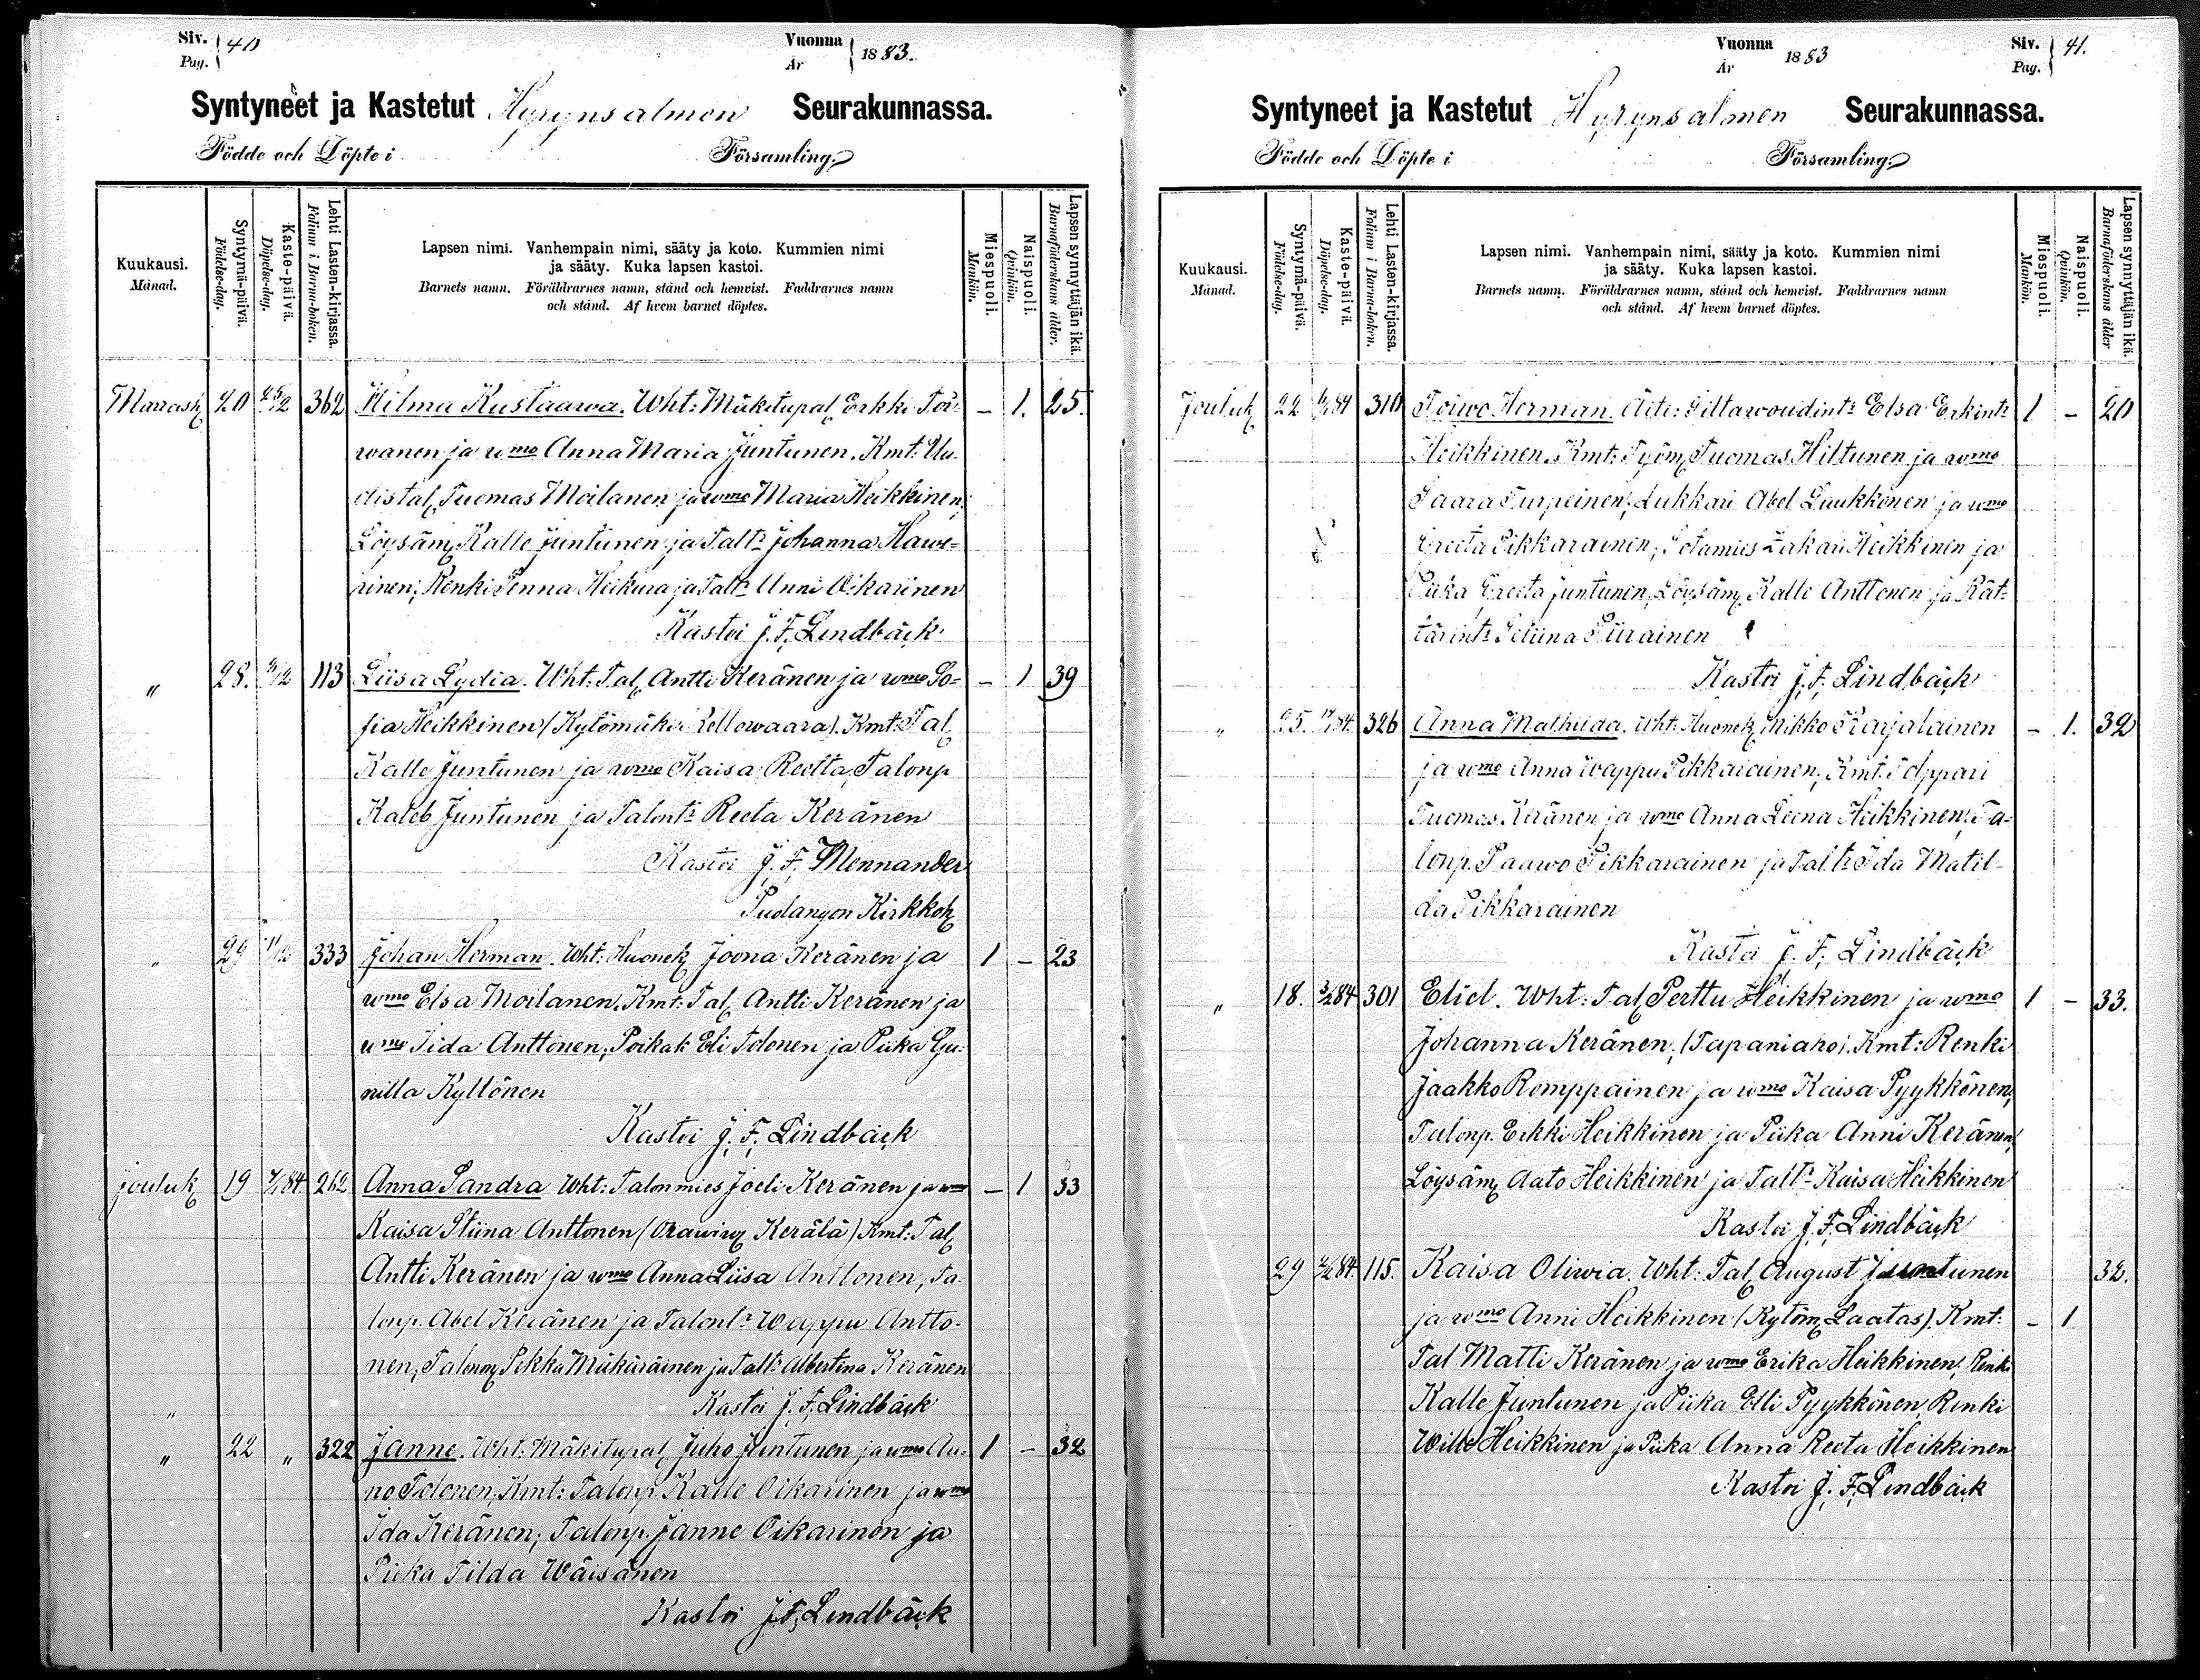 Siv. 40
Pag.
Vuonna 1883.
År
Syntyneet ja Kastetut Hyrynsalmen Seurakunnassa.
Födde och Döpte i Församling.
Kuukausi.
Månad.
Syntymä-päivä.
Födelse-dag.
Kaste-päivä.
Döpelse-dag.
Lehti Lasten-kirjassa.
Folium i Barna-boken.
Lapsen nimi. Vanhempain nimi, sääty ja koto. Kummien nimi
ja sääty. Kuka lapsen kastoi.
Barnets namn. Föräldrarnes namn, stånd och hemvist. Faddrarnes namn
och stånd. Af hvem barnet döptes.
Miespuoli.
Mankön.
Naispuoli.
Qvinkön.
Lapsen synnyttäjän ikä.
Barnaföderskans ålder.
Marrask 20 362 Hilma Kustaawa. Wht: Mäkitupal Erkki To- – 1. 25.
wanen ja wmo Anna Maria Juntunen. Kmt: Uu-
distal Tuomas Moilanen ja wmo Maria Heikkinen;
Löysäm Kalle Juntunen ja Talt: Johanna Hawe-
rinen; Renki Penna Heikura ja Talt: Anni Oikarinen
Kastoi J. F. Lindbäck
" 28. 113 Liisa Lydia. Wht: Tal Antti Keränen ja wmo So- – 1 39
fia Heikkinen (Kytömäki Kellowaara). Kmt: Tal
Kalle Juntunen ja wmo Kaisa Reetta, Talonp
Kaleb Juntunen ja Talont: Reeta Keränen
Kastoi J. F. Mennander
Pudasjyon Kirkkoh
" 29 333 Johan Herman. Wht: Huonek Joona Keränen ja 1 – 23
wmo Elsa Moilanen. Kmt: Tal Antti Keränen ja
wmo Iida Anttonen; Poikak Eli Tolonen ja Piika Gu-
nilla Kyllönen
Kastoi J. F. Lindbäck
Jouluk 19 262 Anna Sandra Wht: Talonmies Joeli Keränen ja wmo – 1 33
Kaisa Stiina Anttonen (Kerälä) Kmt: Tal
Antti Keränen ja wmo Anna Liisa Anttonen, Ta-
lonp. Abel Keränen ja Talont: Wappu Antto-
nen, Talonm Pekka Mükäräinen ja Talt: Albertina Keränen
" Kastoi J. F. Lindbäck
" 22 " 322 Janne. Wht: Mäkitupal Juho Juntunen ja wmo Au- 1 – 32
no Tolonen, Kmt: Talonp Kalle Oikarinen ja wmo
Ida Keränen; Talonp. Janne Oikarinen ja
Piika Tilda Wäisänen
Kastoi J. F. Lindbäck
Vuonna 1883
År
Siv. 41.
Pag.
Syntyneet ja Kastetut Hyrynsalmen Seurakunnassa.
Födde och Döpte i Församling.
Kuukausi.
Månad.
Syntymä-päivä.
Födelse-dag.
Kaste-päivä.
Döpelse-dag.
Lehti Lasten-kirjassa.
Folium i Barna-boken.
Lapsen nimi. Vanhempain nimi, sääty ja koto. Kummien nimi
ja sääty. Kuka lapsen kastoi.
Barnets namn. Föräldrarnes namn, stånd och hemvist. Faddrarnes namn
och stånd. Af hvem barnet döptes.
Miespuoli.
Mankön.
Naispuoli.
Qvinkön.
Lapsen synnyttäjän ikä.
Barnaföderskans ålder
Jouluk 22 310 Toiwo Herman. Äiti: Siltawoudint: Elsa Erkint: 1 – 20
Heikkinen. Kmt: Työm Tuomas Hiltunen ja wmo
Saara Turpeinen; Lukkari Abel Luukkonen ja wmo
Greeta Pikkarainen; Sotamies Zakari Heikkinen ja
Piika Greeta Juntunen, Löysäm Kalle Anttonen ja Rät-
tärint: Stiina Piirainen
Kastoi J. F. Lindbäck
" 25. 326 Anna Mathilda. Wht: Huonek Mikko Karjalainen – 1. 32
ja wmo Anna Wappu Pikkarainen, Kmt: Toppari
Tuomas Keränen ja wmo Anna Leena Heikkinen: Ta-
lonp. Paawo Pikkarainen ja Talt: Ida Matil-
da Pikkarainen
Kastoi J. F. Lindbäck
" 18. 301 Eliel. Wht: Tal Perttu Heikkinen ja wmo 1 – 33.
Johanna Keränen, (Tapaniaho). Kmt: Renki
Jaakko Romppainen ja wmo Kaisa Pyykkönen,
Talonp. Erkki Heikkinen ja Piika Anni Keränen,
Löysäm Aato Heikkinen ja Talt: Kaisa Heikkinen
Kastoi J. F. Lindbäck
29 115. Kaisa Oliwia. Wht: Tal August Juntunen 32.
ja wmo Anni Heikkinen (Kytöm Laatas). Kmt: – 1
Tal Matti Keränen ja wmo Erika Heikkinen, Renki
Kalle Juntunen ja Piika Elli Pyykkönen, Renki
Wille Heikkinen ja Piika Anna Reeta Heikkinen
Kastoi J. F. Lindbäck